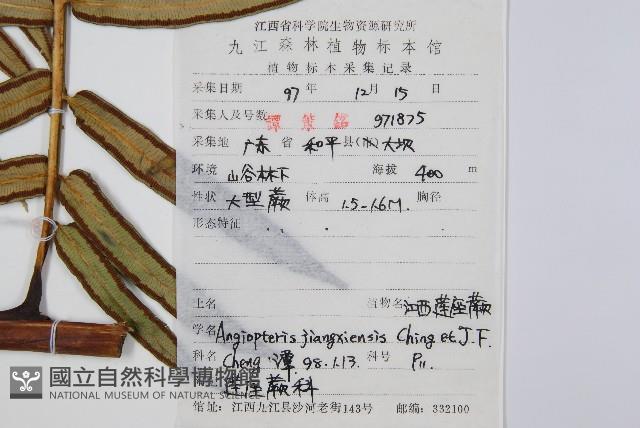 江西省科学院生物资源研究所
九江森林植物标本馆
植物标本采集记录
采集日期 97 年 12 月 15 日
采集人及号数 譚策銘 971875
采集地 广东 省 和平 县(市) 大坝
环境 山谷林下 海拔 400 m
性状 大型蕨 体高 1.5-1.6M. 胸径
形态特征
土名 植物名 江西莲座蕨
学名 Angiopteris jiangxiensis Ching et J. F.
科名 Cheng 譚 98.1.13. 科号 P11.
莲座蕨科
國立自然科學博物館
NATIONAL MUSEUM OF NATURAL SCIENCE
馆址:江西九江县沙河老街143号 邮编:332100